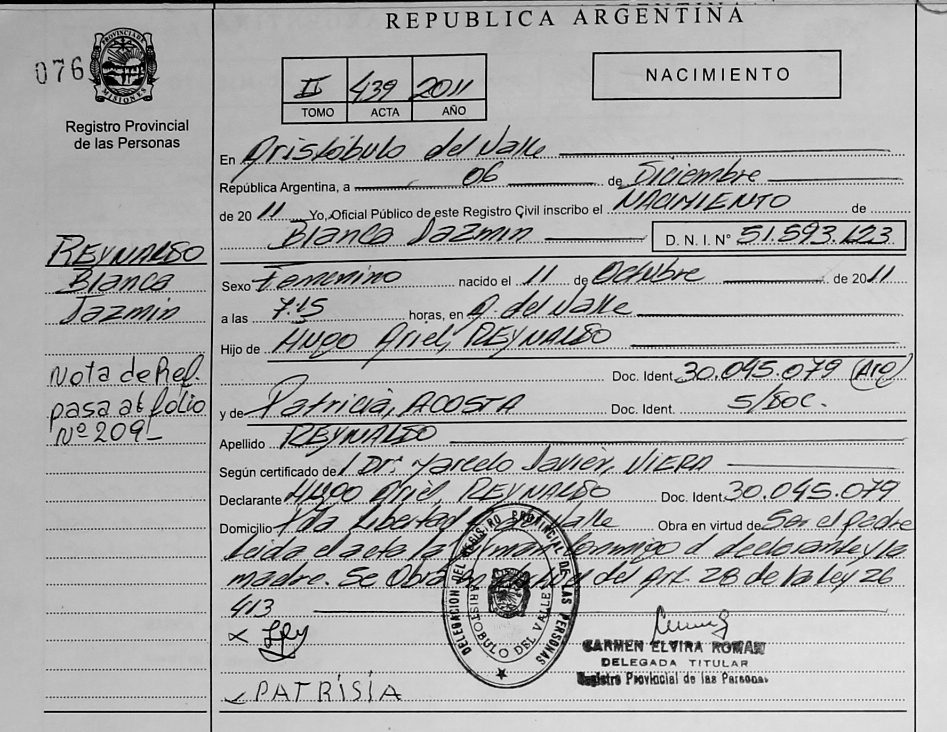 REPUBLICA ARGENTINA
076
PROVINCIA DE MISIONES
Registro Provincial
de las Personas
II 439 2011
TOMO ACTA AÑO
NACIMIENTO
En Aristóbulo del Valle
República Argentina, a 06 de Diciembre
de 20 11 Yo, Oficial Público de este Registro Civil inscribo el NACIMIENTO de
Blanca Jazmin D. N. I. Nº 51.593.123
Sexo Femenino nacido el 11 de Octubre de 2011
a las 7:15 horas, en A. del Valle
Hijo de HUGO Ariel, REYNALDO
Doc. Ident. 30.045.079 (Arg)
y de Patricia, ACOSTA Doc. Ident. S/DOC.
Apellido REYNALDO
Según certificado de Dr. Marcelo Javier, VIERA
Declarante HUGO Ariel, REYNALDO Doc. Ident. 30.045.079
Domicilio Libertad Valle Obra en virtud de Ser el padre
Leida el acta la firman conmigo el declarante y la
madre. Se Obra en virtud del Art. 28 de la Ley 26
413
x
PATRISIA
REYNALDO
Blanca
Jazmin
Nota de Ref.
pasa al folio
Nº 209_
DELEGACION DEL REGISTRO PROVINCIAL DE LAS PERSONAS
ARISTOBULO DEL VALLE
CARMEN ELVIRA ROMAN
DELEGADA TITULAR
Registro Provincial de las Personas